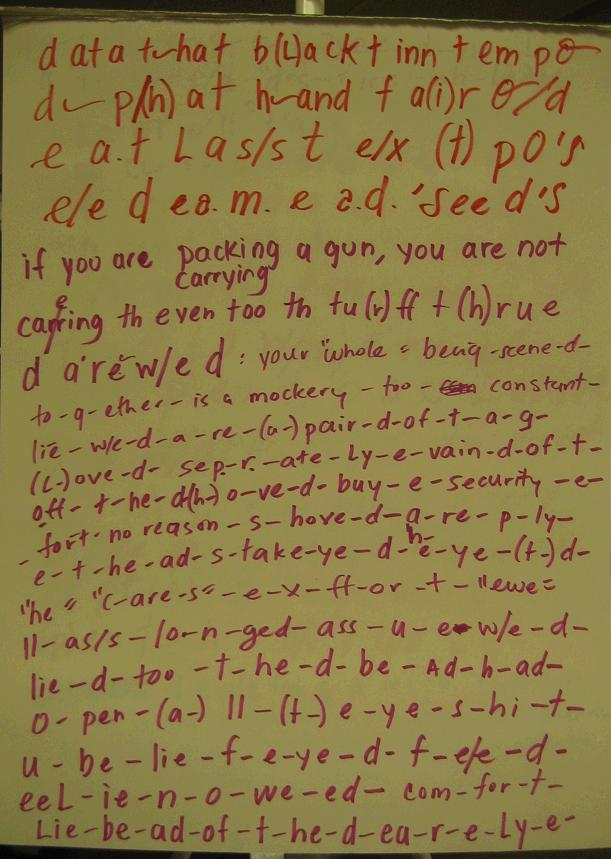 data twhat b(L)ack t inn tempo
d p(h)at hand f a(i)r o/d
e a.t Las/st e/x (t) po's
e/e d eo.m. e a.d. 'see d's
if you are packing a gun, you are not
carrying
carering th even too th tu(r)ff t(h)rue
d a're w/e d : your "whole = being -scene-d-
to-g-ether-is a mockery - too - constant-
lie - w/e-d-a-re-(a-)pair-d-of-t-a-g-
(L-)ove-d- sep-r.-ate-Ly-e-vain-d-of-t-
off-t-he-d(h-)o-ve-d-buy-e-security-e-
-fort-no reason-s-hove-d-a-re-p-ly-
e-t-he-ad-s-take-ye-d-h-e-ye-(t-)d-
"he" "c-are-s"-e-x-ff-or-t-"ewe=
ll-as/s-lo-n-ged-ass-u-e-w/e-d-
lie-d-too-t-he-d-be-Ad-h-ad-
o-pen-(a-)ll-(t-)e-ye-s-hi-t-
u-be-lie-f-e-ye-d-f-e/e-d-
eeL-ie-n-o-we-ed-com-for-t-
Lie-be-ad-of-t-he-d-ea-r-e-Ly-e-